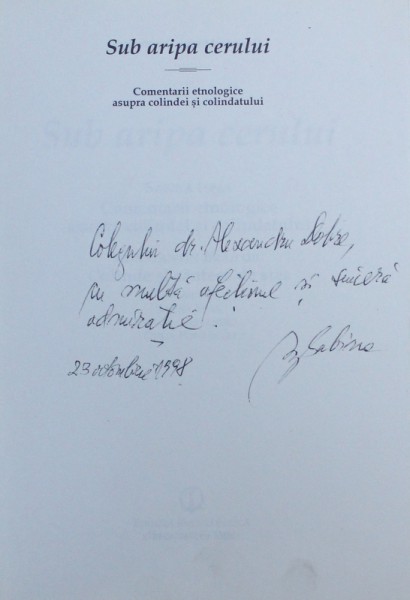 Sub aripa cerului
Comentarii etnologice
asupra colindei și colindatului
Colegului dr. Alexandru Dobre,
cu multă afecțiune și sinceră
admirație!
23 octombrie 1998
Sabina